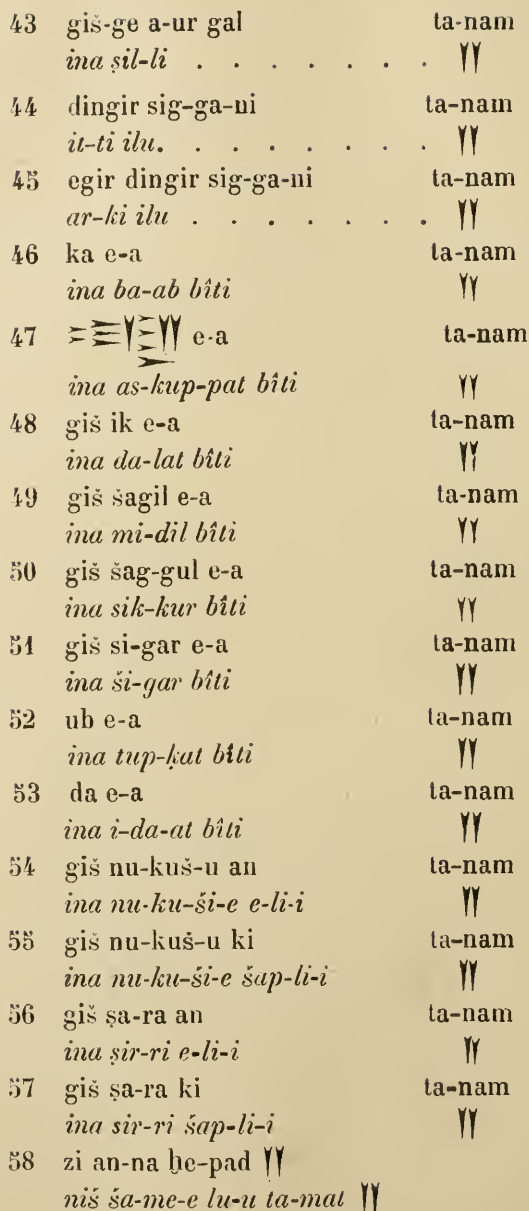 43 giš-ge a-ur gal ta-nam
ina ṣil-li . . . . . . . 𒐀
44 dingir sig-ga-ni ta-nam
it-ti ilu. . . . . . . . 𒐀
45 egir dingir sig-ga-ni ta-nam
ar-ki ilu . . . . . . . 𒐀
46 ka e-a ta-nam
ina ba-ab bîti 𒐀
47 e-a ta-nam
ina as-kup-pat bîti 𒐀
48 giš ik e-a ta-nam
ina da-lat bîti 𒐀
49 giš šagil e-a ta-nam
ina mi-dil bîti 𒐀
50 giš šag-gul e-a ta-nam
ina sik-kur bîti 𒐀
51 giš si-gar e-a ta-nam
ina ši-gar bîti 𒐀
52 ub e-a ta-nam
ina tup-ḳat bîti 𒐀
53 da e-a ta-nam
ina i-da-at bîti 𒐀
54 giš nu-kuš-u an ta-nam
ina nu-ku-ši-e e-li-i 𒐀
55 giš nu-kuš-u ki ta-nam
ina nu-ku-ši-e šap-li-i 𒐀
56 giš ṣa-ra an ta-nam
ina ṣir-ri e-li-i 𒐀
57 giš ṣa-ra ki ta-nam
ina sir-ri šap-li-i 𒐀
58 zi an-na ḫe-pad 𒐀
niš ša-me-e lu-u ta-mat 𒐀